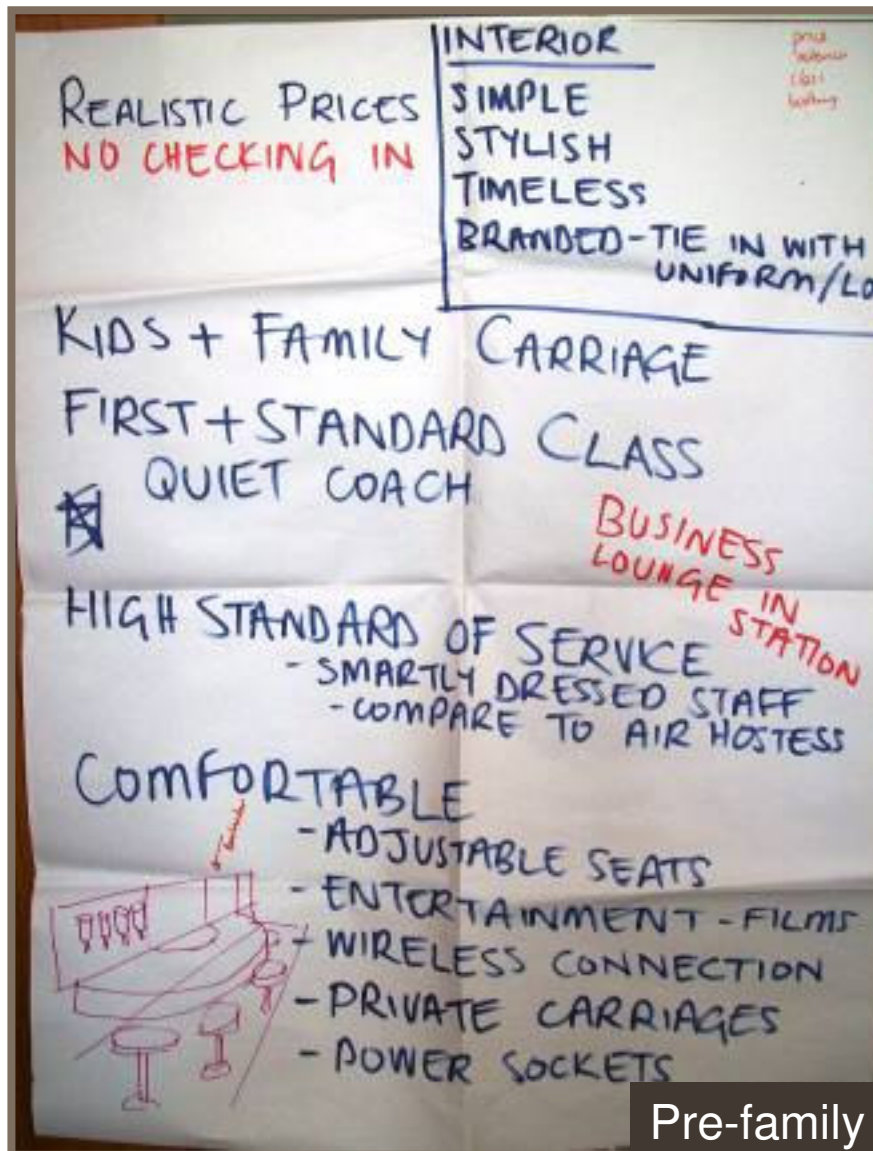 REALISTIC PRICES
NO CHECKING IN
INTERIOR
SIMPLE
STYLISH
TIMELESS
BRANDED-TIE IN WITH
UNIFORM/LO
price
KIDS + FAMILY CARRIAGE
FIRST + STANDARD CLASS
QUIET COACH
BUSINESS
LOUNGE IN
STATION
HIGH STANDARD OF SERVICE
- SMARTLY DRESSED STAFF
- COMPARE TO AIR HOSTESS
COMFORTABLE
- ADJUSTABLE SEATS
- ENTERTAINMENT - FILMS
- WIRELESS CONNECTION
- PRIVATE CARRIAGES
- POWER SOCKETS
Pre-family